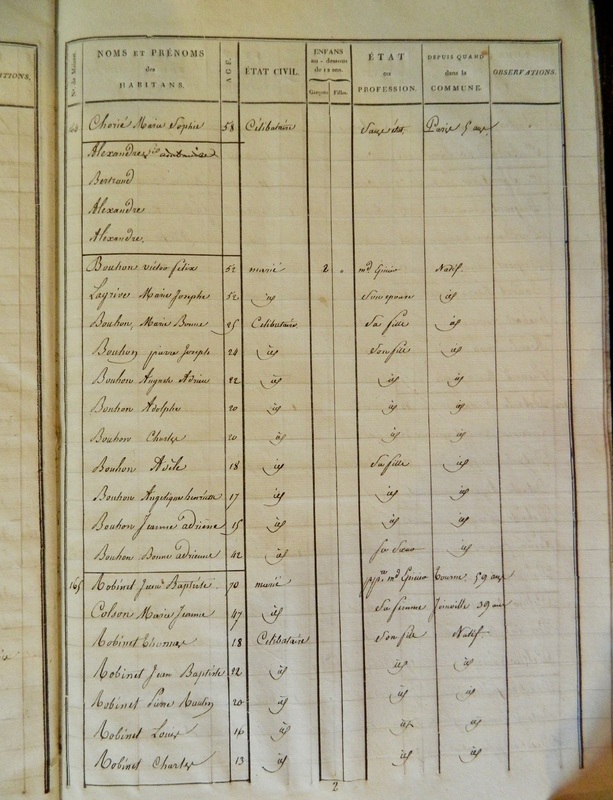 TIONS.
Nos. de Maison.
NOMS ET PRÉNOMS
des
HABITANS.
AGE.
ÉTAT CIVIL.
ENFANS
au-dessous
de 12 ans.
Garçons
Filles.
ÉTAT
ou
PROFESSION.
DEPUIS QUAND
dans la
COMMUNE.
OBSERVATIONS.
Chorié Marie Sophie 58 Célibataire Sans état Paris 5 ans
Alexandre
Bertrand
Alexandre
Alexandre.
Bouhon victor félix 52 marié 2 md Natif
Lagrive Marie Josephe 52 id Son epouse id
Bouhon, Marie Bonne 25 Célibataire Sa fille id
Bouhon pierre Joseph 24 id Son fils id
Bouhon Auguste Adrien 22 id id id
Bouhon Adolphe 20 id id id
Bouhon Charles 20 id id id
Bouhon Adèle 18 id Sa fille id
Bouhon Angelique henriette 17 id id id
Bouhon Jeanne adrienne 15 id id id
Bouhon Bonne adrienne 42 id Sa Sœur id
165 Robinet Jean Baptiste 70 marié md 59 ans
Colson Marie Jeanne 47 id Sa femme Joinville 39 ans
Robinet Thomas 18 Célibataire Son fils Natif
Robinet Jean Baptiste 22 id id id
Robinet 20 id id id
Robinet Louis 16 id id id
Robinet Charles 13 id id id
2